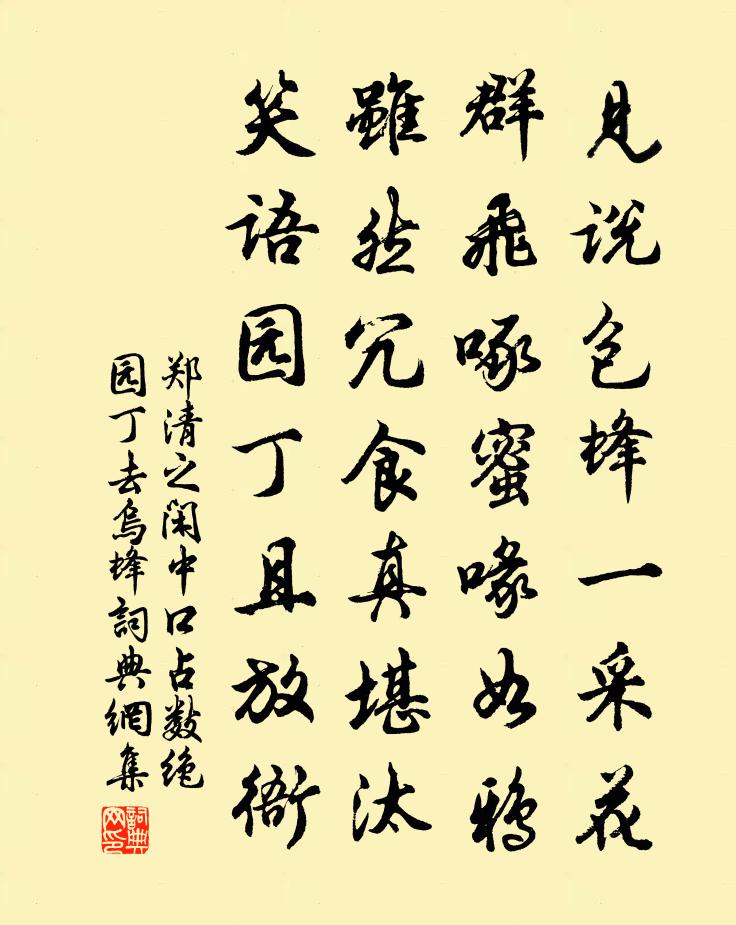 见说包蜂一采花
群飞啄蜜喙如鸦
虽然冗食真堪汰
笑语园丁且放衙
郑清之闲中口占数绝
园丁去乌蜂詞典網集
詞典网印